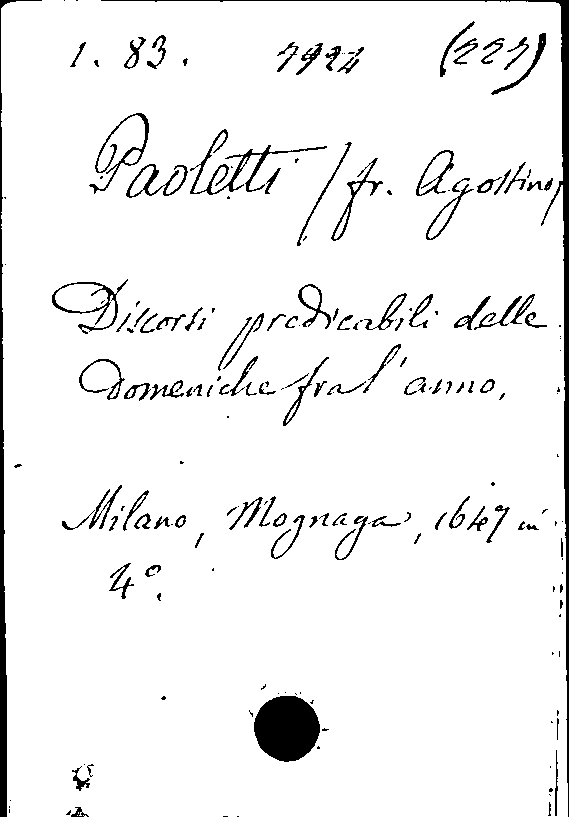 1. 83. 7924 (227)
Paoletti / fr. Agostino,
Discorsi predicabili delle
Domeniche fra l'anno,
Milano, Mognaga, 1647 in
4°.